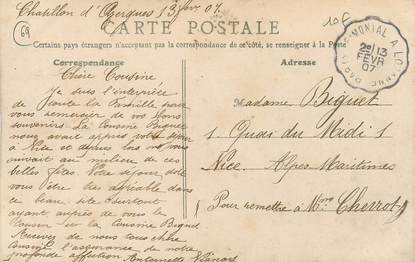 Chatillon d'Azergues 13 fevr 07.
69
10F
CARTE POSTALE
Certains pays étrangers n'acceptant pas la correspondance de ce côté, se renseigner à la Poste.
Correspondance
Adresse
2e/13
FEVR
07
Chère Cousine,
Je suis l'interprète de
toute la famille pour
vous remercier de vos bons
souvenirs. La Cousine Biguet
nous avait appris votre
à Nice et depuis lors vous
au milieu de ces
belles fêtes. Votre séjour doit
vous être des agréable dans
ce beau site surtout
ayant auprès de vous le
Cousin et la Cousine Biguet
Recevez de nous tous chère
Cousine l'assurance de notre
profonde affection Antoinette
Madame Biguet
1 Quai du Midi 1
Nice. Alpes Maritimes
Pour remettre à Mme Cherrot